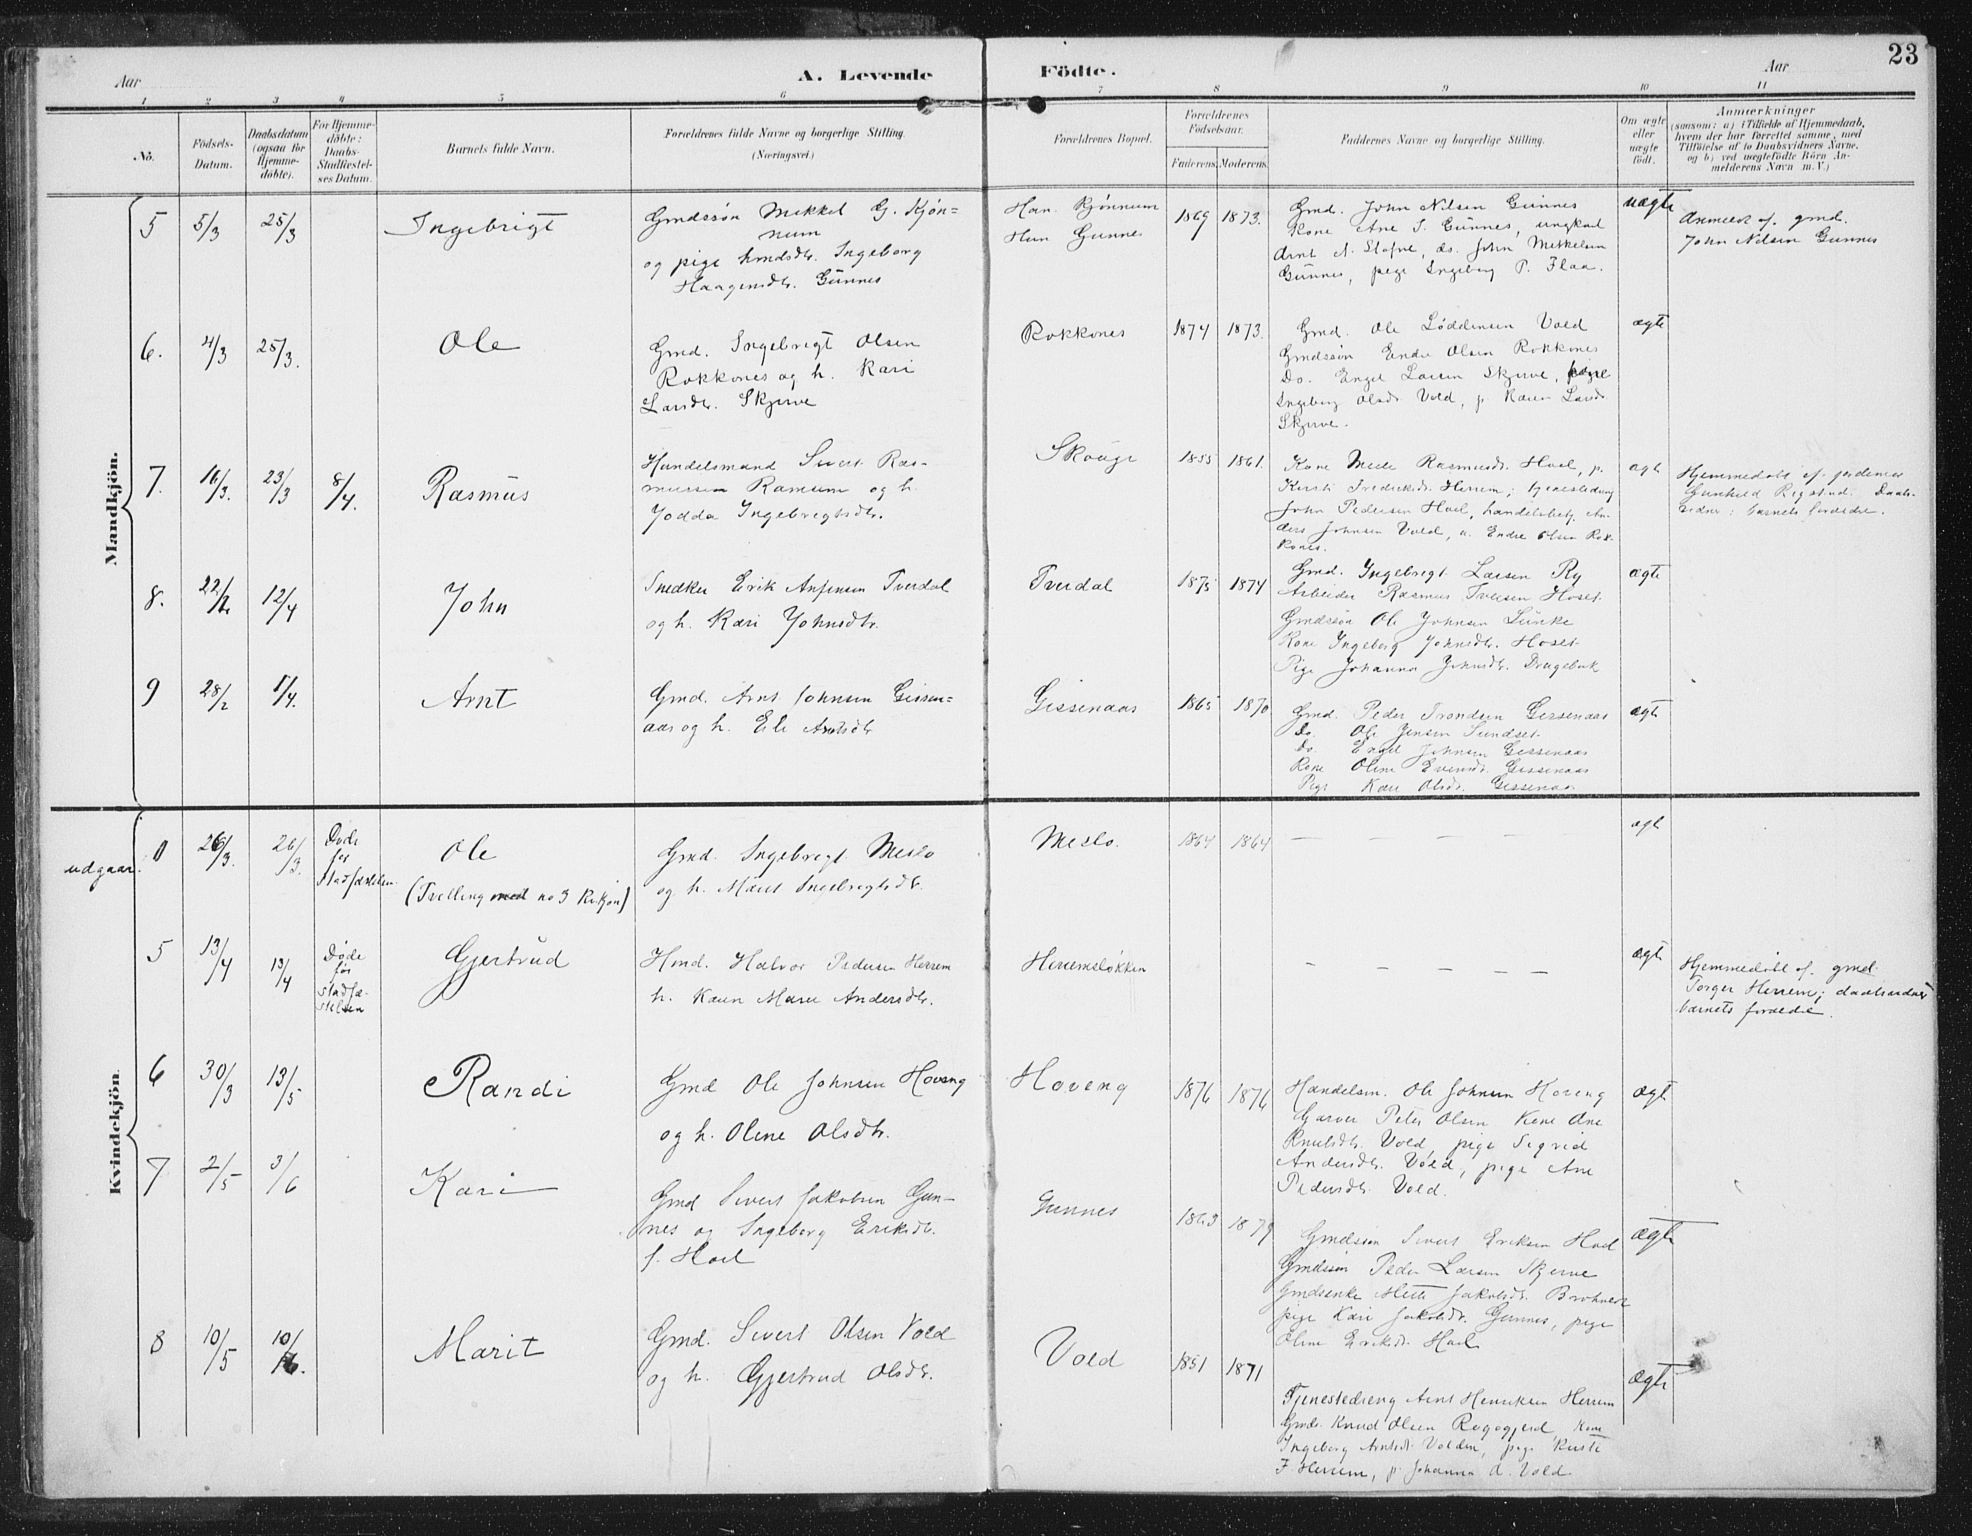 23
Aar
A. Levende Födte.
Aar
1 2 3 4 5 6 7 8 9 10 11
No.
Födsels-
Datum.
Daabsdatum
(ogsaa for
Hjemme-
döbte).
For Hjemme-
döbte:
Daabs-
Stadfæstel-
ses Datum.
Barnets fulde Navn.
Forældrenes fulde Navne og borgerlige Stilling.
(Næringsvei.)
Forældrenes Bopæl.
Forældrenes
Födselsaar.
Faderens. Moderens.
Faddernes Navne og borgerlige Stilling.
Om ægte
eller
uægte
födt.
Anmerkninger
(saasom: a) i Tilfælde af Hjemmedaab,
hvem der har forrettet samme, med
Tilföielse af to Daabsvidners Navne.
og b) ved uegtefödte Börn An-
melderens Navn m. V.)
Mandkjön.
5
5/3
25/3
Ingebrigt
Gmdssøn Mikkel G. Kjøn-
num
og pige hmdsdtr. Ingeborg
Haagensdtr. Gunnes
Han Kjønnum
Hun Gunnes
1869 1873.
Gmd. John Nilsen Gunnes
Kone Ane S. Gunnes, ungkarl
Arnt N. Stafne, ds. John Mikkelsen
Gunnes, pige Ingeborg P. Flaa.
uægte
Anmeldt af gmd.
John Nilsen Gunnes
6.
4/3
25/3.
Ole
Gmd. Ingebrigt Olsen
Rokkones og h. Kari
Larsdtr. Skjerve
Rokkones
1874 1873.
Gmd. Ole Løddensen Vold
Gmdssøn Endre Olsen Rokkones
Do. Engel Larsen Skjerve, pige
Ingeborg Olsdtr Vold, p Karen Larsdtr
Skjerve.
ægte
7.
16/3.
23/3
8/4.
Rasmus
Handelsmand Sivert Ras-
mussen Ramsem og h.
Jodda Ingebrigtsdtr.
Skauge
1855 1861.
Kone Mede Rasmusdtr. Hoel, p.
Kersti Fredriksdtr. Herrem; tjenestedreng
John Pedersen Hoel, handelsbetj. An-
ders Johnsen Vold, u. Endre Olsen Rok-
kones.
ægte
Hjemmedøbt af jordemor
Gunhild Rigstad. Daabs-
vidner: barnets forældre.
8.
12/4
John
Snedker Erik Anfinsen Tverdal
og h. Kari Johnsdtr.
Tverdal
1875 1874
Gmd. Ingebrigt Larsen Ry
Arbeider Rasmus Iversen Hoset
Gmdssøn Ole Johnsen Lunke
Kone Ingeborg Johnsdtr. Hoset
Pige Johanna Johnsdtr. Dragebak
ægte
9
28/2
1/4.
Arnt
Gmd. Arnt Johnsen Gissen-
aas og h. Eli Arntsdtr
Gissenaas
1865 1870
Gmd. Peder Trondsen Gissenaas
Do. Ole Jensen Sundset
Do. Engel Johnsen Gissenaas
Kone Oline Evensdtr. Gissenaas
Pige Kari Olsdtr. Gissenaas
ægte
Kvindekjön.
udgaar:
0
26/3.
26/3.
Døde
før
stadfæstelsen
Ole
(Tvilling med no 3 Kvkjøn)
Gmd. Ingebrigt Meslo
og h. Marit Ingebrigtsdtr.
Meslo.
1864 1864
— — — — —
ægt
5
13/4
13/4
Døde
før
stadfæ-
stelsen
Gjertrud
Hmd. Halvor Pedersen Herrem
h. Karen Marie Andersdtr.
Herremsløkken
— — — — —
ægte
Hjemmedøbt af gmd.
Torger Herrem; daabsvidner
barnets forældre.
6
30/3
13/5
Randi
Gmd Ole Johnsen Hoveng
og h. Oline Olsdtr.
Hoveng
1876 1876
Handelsm. Ole Johnsen Hoveng
Garver Peter Olsen Kone Ane
Knutsdtr. Vold, pige Sigrid
Andersdtr. Vold, pige Ane
Pedersdtr. Vold.
ægt
7
2/5
3/6
Kari
Gmd Sivert Jakobsen Gun-
nes og Ingeborg Eriksdtr.
f. Hoel
Gunnes
1863 1879
Gmdssøn Sivert Eriksen Hoel
Gmdssøn Peder Larsen Skjerve
Gmdsenke Mette Jakobsdtr.
pige Kari Jakobsdtr. Gunnes, pige
Oline Eriksdtr. Hoel
ægte
8
10/5
10/6.
Marit
Gmd. Sivert Olsen Vold
og h. Gjertrud Olsdtr.
Vold
1851 1871
Tjenestedreng Arnt Henriksen Herrem
Gmd. Knud Olsen Rogogjerd, Kone
Ingeborg Arntsdtr. Volden, pige Kersti
F. Herrem, p Johanna A. Vold
ægte